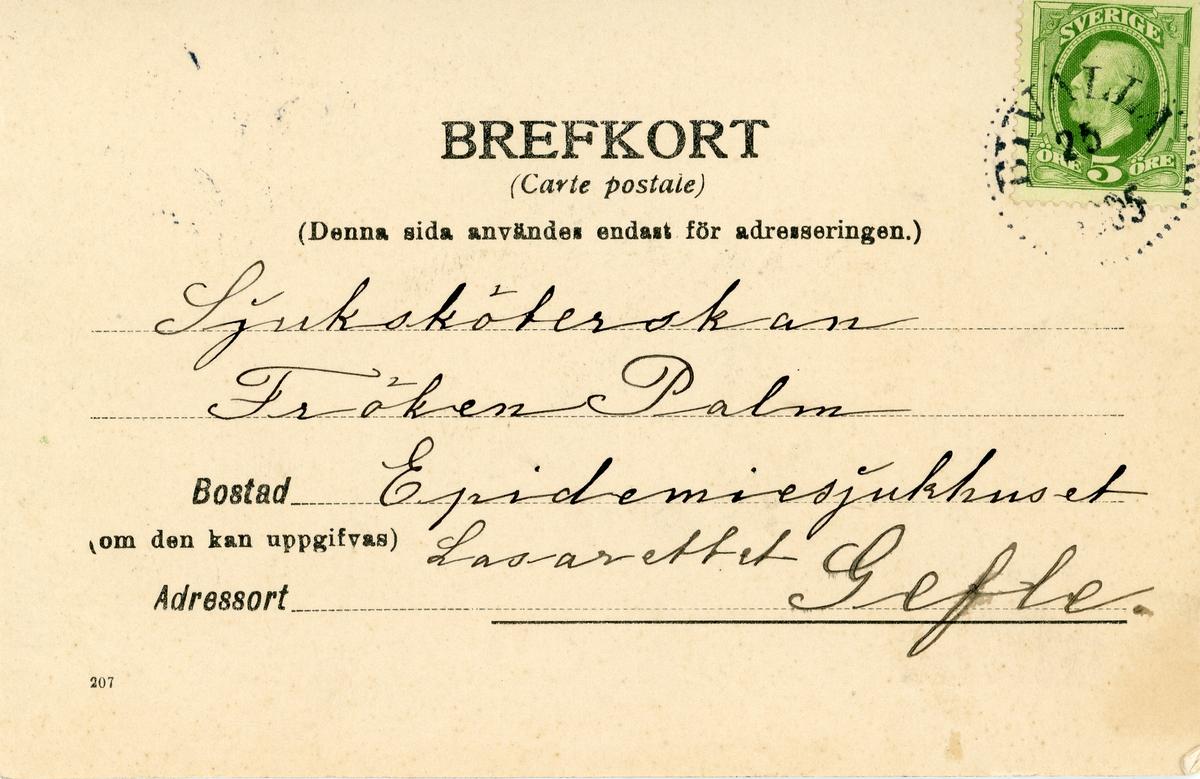 SVERIGE
ÖRE 5 ÖRE
25
BREFKORT
(Carte postale)
(Denna sida användes endast för adresseringen.)
Sjuksköterskan
Fröken Palm
Bostad Epidemiesjukhuset
(om den kan uppgifvas) Lasarettet
Adressort Gefle.
207